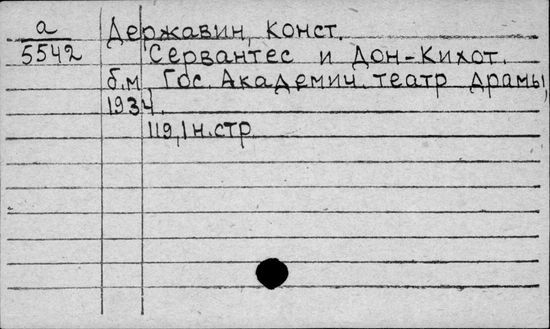 а
5542
Державин, Конст.
Сервантес и Дон-Кихот.
б.м. Гос. Академич. театр драмы,
1934.
119, 1 н. стр.